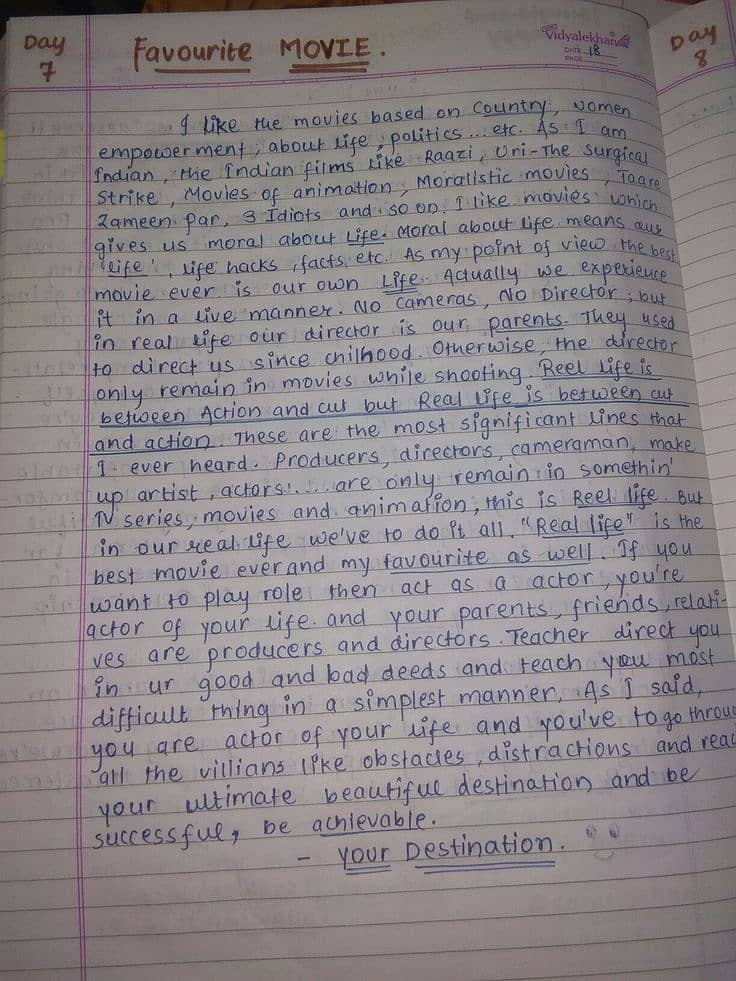 Day
7
Favourite MOVIE.
Vidyalekhan
DATE 18
PAGE
Day
8
I like the movies based on country, women
empowerment, about life, politics... etc. As I am
Indian, the Indian films like Raazi, Uri-The surgical
Strike, Movies of animation, Moralistic movies, Taare
Zameen par, 3 Idiots and so on. I like movies which
gives us moral about Life. Moral about life means our
'Life', life hacks, facts etc. As my point of view the best
movie ever is our own Life. Actually we experience
it in a live manner. No cameras, No Director, but
in real life our director is our parents. They used
to direct us since chilhood. Otherwise, the director
only remain in movies while shooting. Reel life is
between Action and cut but Real life is between cut
and action. These are the most significant lines that
I ever heard. Producers, directors, cameraman, make
up artist, actors.... are only remain in somethin'
TV series, movies and animation, this is Reel life. But
in our real life we've to do it all. "Real life" is the
best movie ever and my favourite as well. If you
want to play role then act as a actor, you're
actor of your life and your parents, friends, relati-
ves are producers and directors. Teacher direct you
in ur good and bad deeds and teach you most
difficult thing in a simplest manner. As I said,
you are actor of your life and you've to go throug
all the villians like obstacles, distractions and reac
your ultimate beautiful destination and be
successful, be achievable.
- Your Destination.